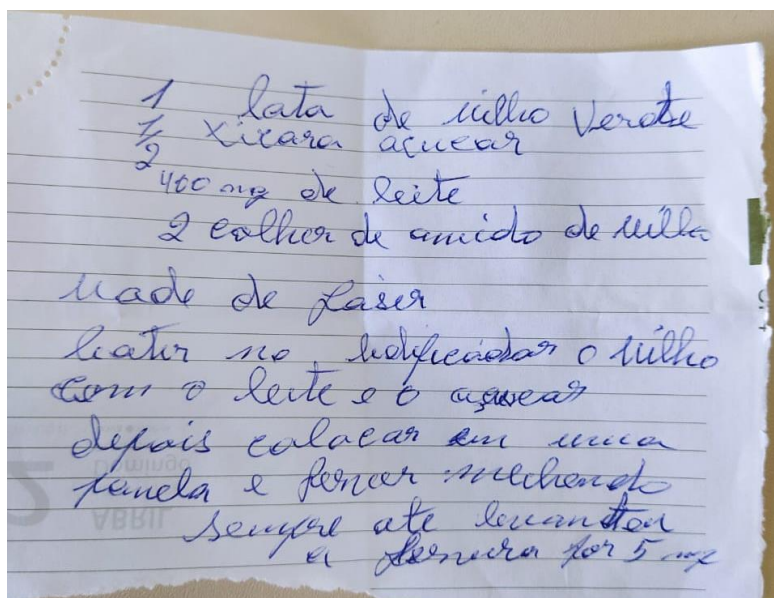 1 lata de milho Verde
1/2 xicara açucar
400 mg de leite
2 colher de amido de milho
Mode de faser
bater no lidificador o milho
com o leite e o açucar
depois colocar em uma
panela e ferver mechendo
sempre ate levantar
a fervura por 5
Domingo
ABRIL